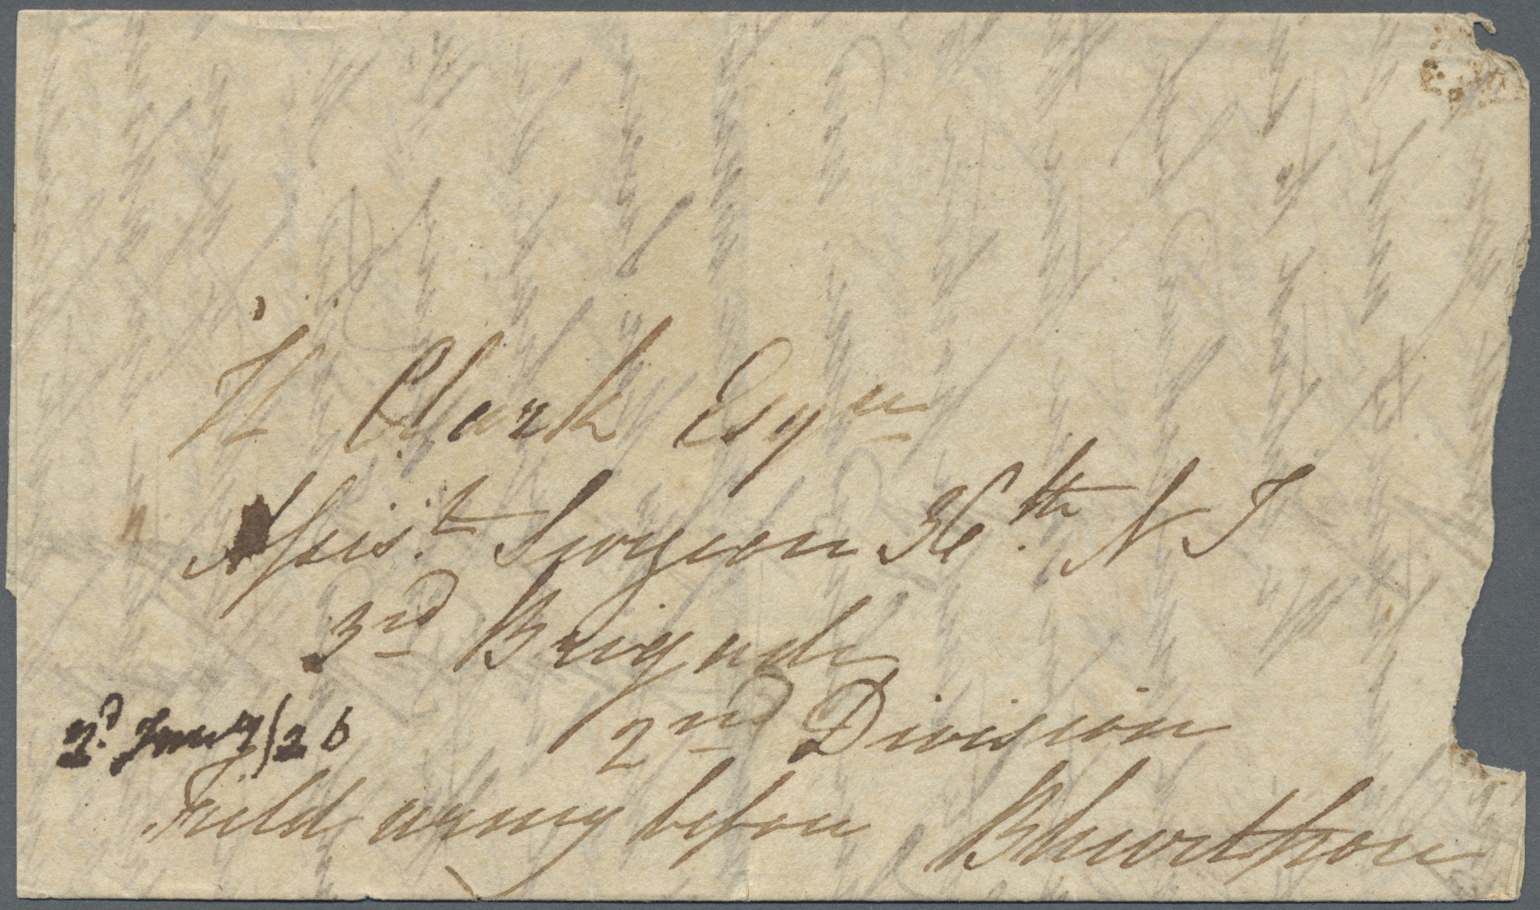 W Clark Esqre
Assist. Surgeon 36th. N I
3rd Brigade
2nd Division
2d. Jany/26
Field army before Bhurtpore